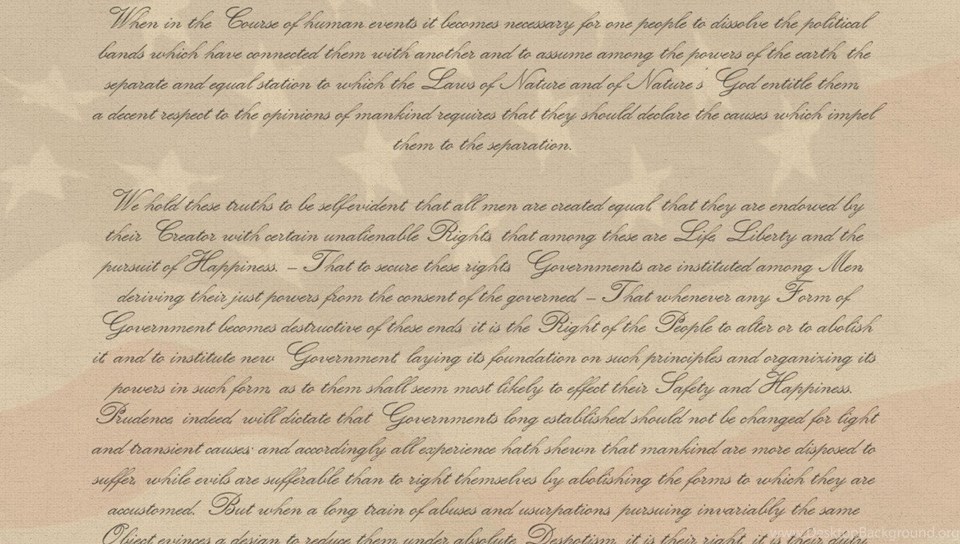 When in the Course of human events it becomes necessary for one people to dissolve the political
bands which have connected them with another and to assume among the powers of the earth the
separate and equal station to which the Laws of Nature and of Nature s God entitle them
a decent respect to the opinions of mankind requires that they should declare the causes which impel
them to the separation.
We hold these truths to be self evident that all men are created equal that they are endowed by
their Creator with certain unalienable Rights that among these are Life Liberty and the
pursuit of Happiness. – That to secure these rights Governments are instituted among Men
deriving their just powers from the consent of the governed – That whenever any Form of
Government becomes destructive of these ends it is the Right of the People to alter or to abolish
it and to institute new Government laying its foundation on such principles and organizing its
powers in such form as to them shall seem most likely to effect their Safety and Happiness.
Prudence indeed will dictate that Governments long established should not be changed for light
and transient causes and accordingly all experience hath shewn that mankind are more disposed to
suffer while evils are sufferable than to right themselves by abolishing the forms to which they are
accustomed. But when a long train of abuses and usurpations pursuing invariably the same
Object evinces a design to reduce them under absolute Despotism it is their right it is their duty
www.DesktopBackground.org